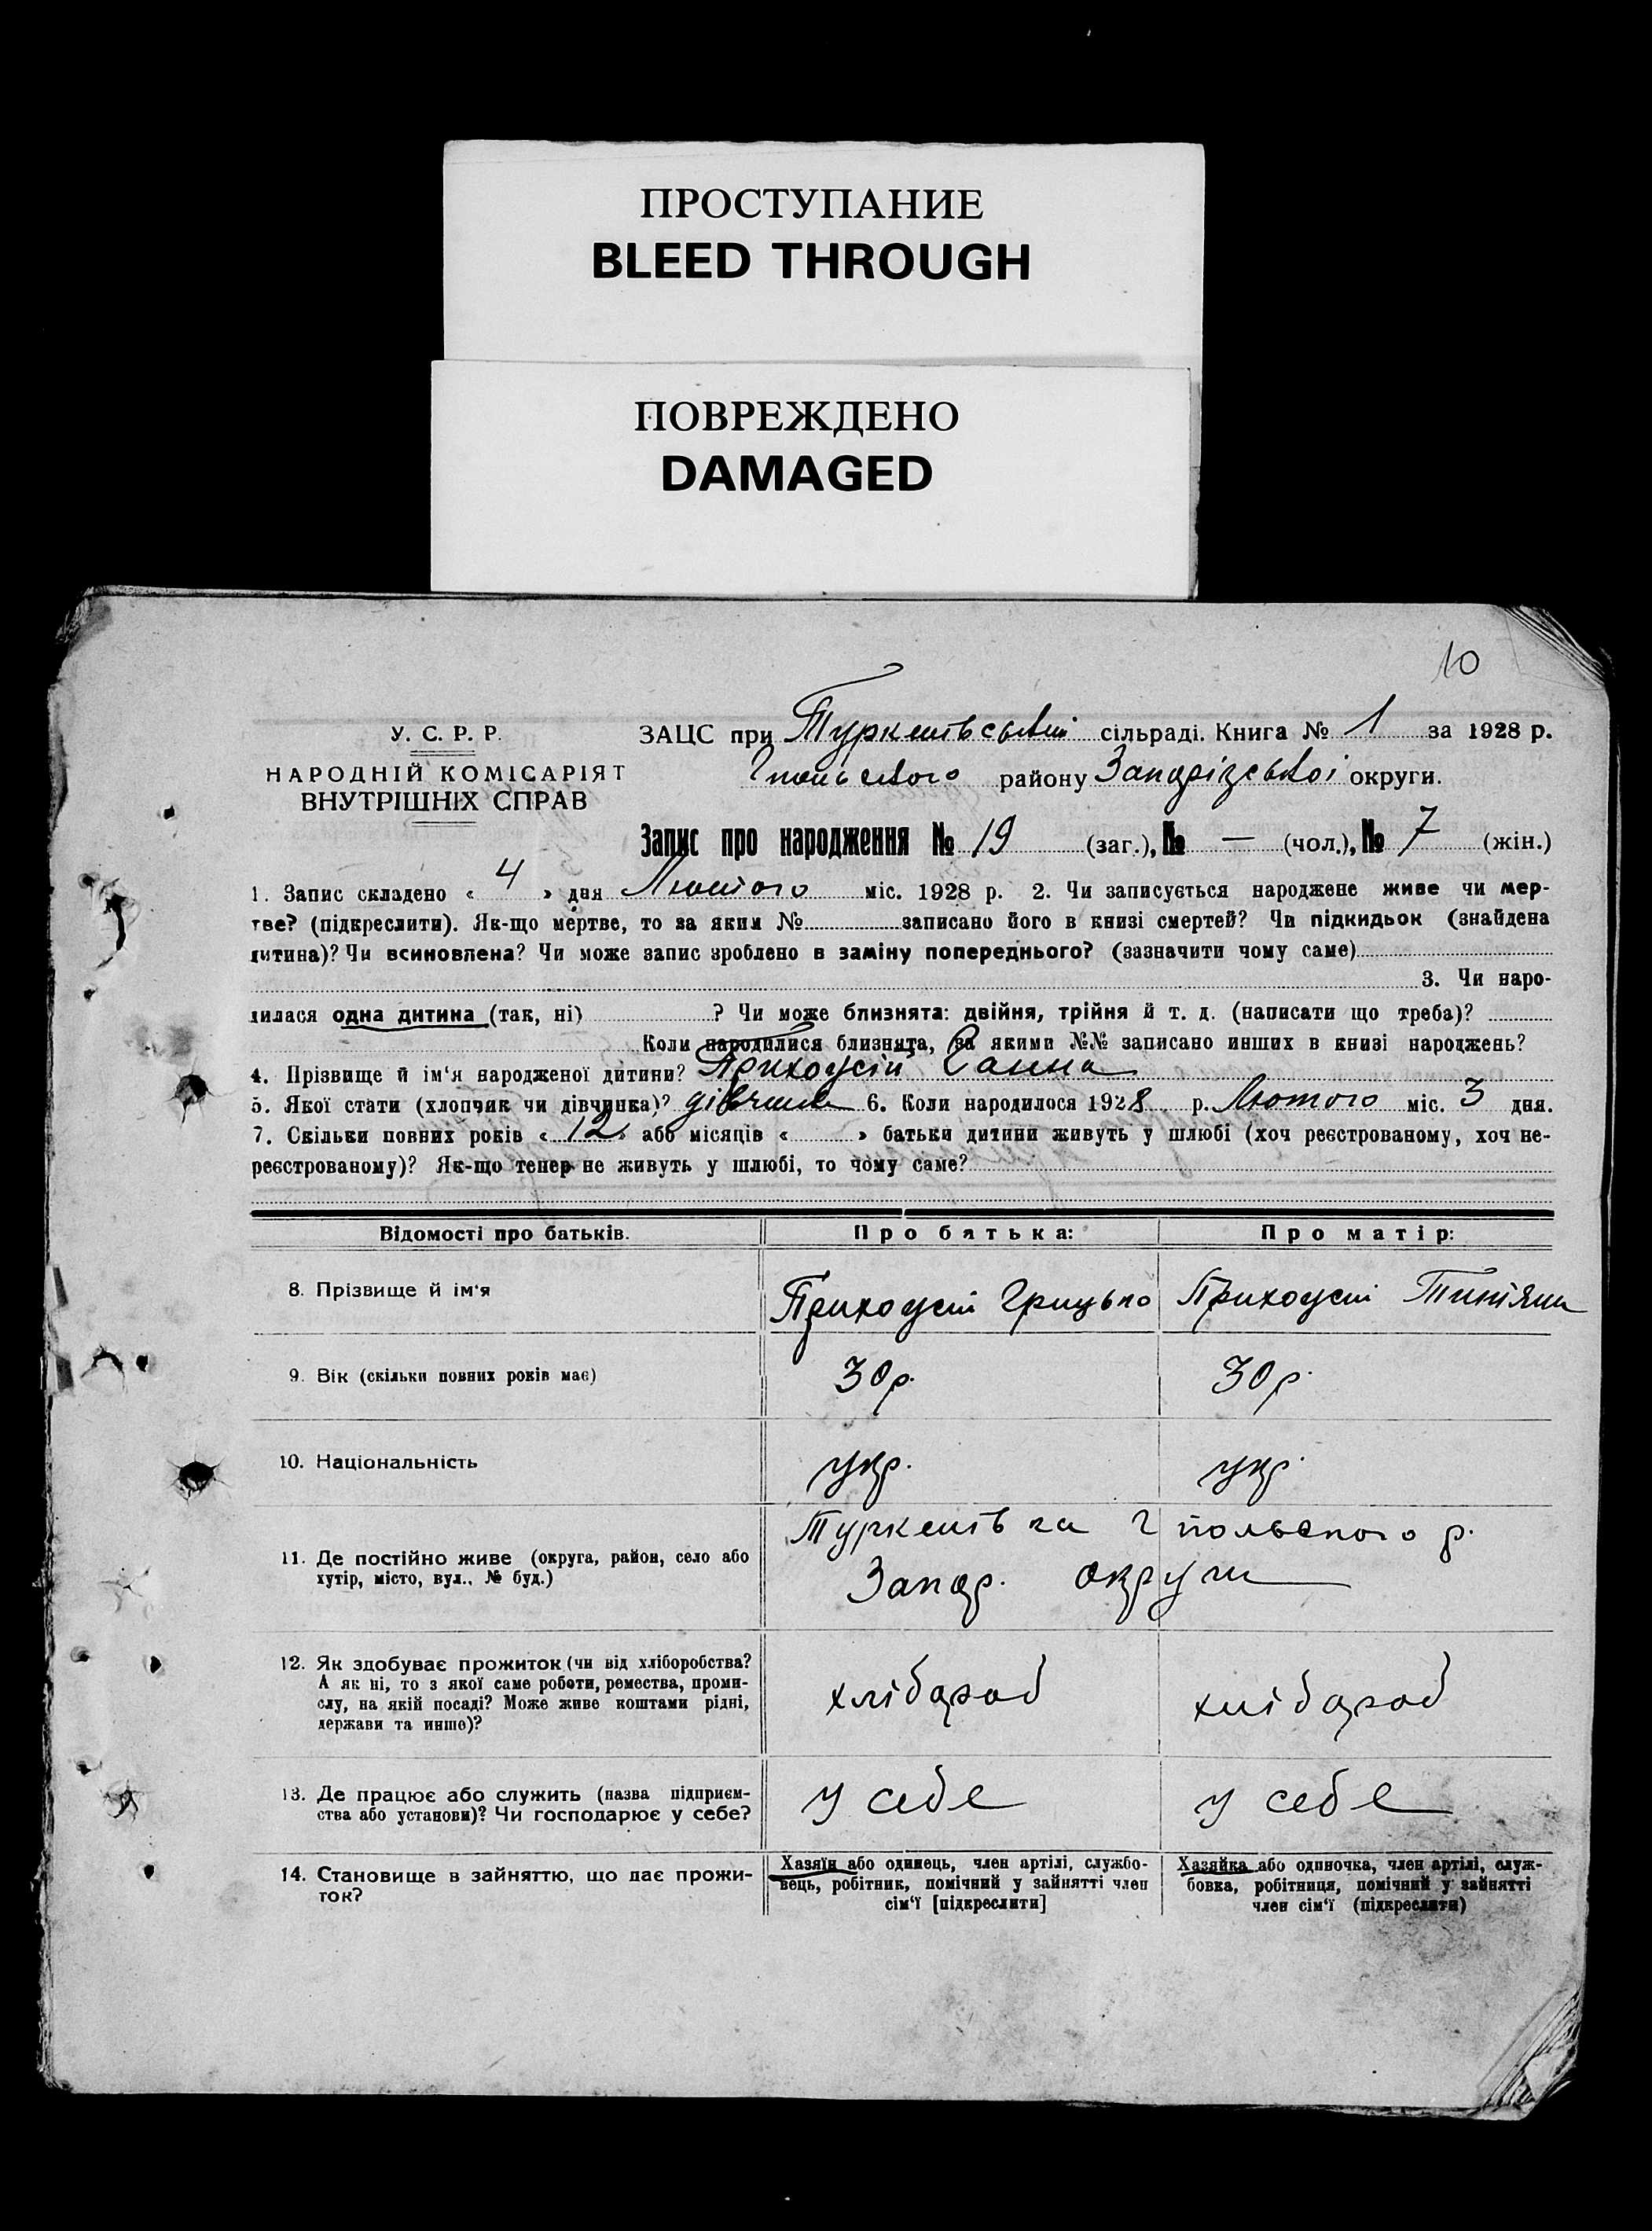 ПРОСТУПАНИЕ
BLEED THROUGH
ПОВРЕЖДЕНО
DAMAGED
10
У. С. Р. Р.
НАРОДНІЙ КОМІСАРІЯТ
ВНУТРІШНІХ СПРАВ
ЗАЦС при сільраді. Книга № 1 за 1928 р.
району Запорізської округи.
Запис про народження № 19 (заг.), № — (чол.), № 7 (жін.)
1. Запис складено « 4 » дня Лютого міс. 1928 р. 2. Чи записується народжене живе чи мер-
тве? (підкреслити). Як-що мертве, то за яким № записано його в книзі смертей? Чи підкидьок (знайдена
дитина)? Чи всиновлена? Чи може запис зроблено в заміну попереднього? (зазначити чому саме)
3. Чи наро-
дилася одна дитина (так, ні) ? Чи може близнята: двійня, трійня й т. д. (написати що треба)?
Коли народилися близнята, за якими №№ записано инших в книзі народжень?
4. Прізвище й ім‘я народженої дитини?
5. Якої стати (хлопчик чи дівчинка)? 6. Коли народилося 1928 р. Лютого міс. 3 дня.
7. Скільки повних років « 12 » або місяців « » батьки дитини живуть у шлюбі (хоч реєстрованому, хоч не-
реєстрованому)? Як-що тепер не живуть у шлюбі, то чому саме?
Відомості про батьків. Про батька: Про матір:
8. Прізвище й ім‘я Грицько
9. Вік (скільки повних років має) 30 р. 30 р.
10. Національність укр. укр.
11. Де постійно живе (округа, район, село або
хутір, місто, вул., № буд.) польського р.
Запор. округи
12. Як здобуває прожиток (чи від хліборобства?
А як ні, то з якої саме роботи, ремества, проми-
слу, на якій посаді? Може живе коштами рідні,
держави та инше)? хлібороб хлібороб
13. Де працює або служить (назва підприєм-
ства або установи)? Чи господарює у себе? у себе у себе
14. Становище в зайняттю, що дає прожи-
ток?
Хазяїн або одинець, член артілі, службо-
вець, робітник, помічний у зайнятті член
сім‘ї [підкреслити]
Хазяйка або одиночка, член артілі, служ-
бовка, робітниця, помічний у зайнятті
член сім‘ї (підкреслити)